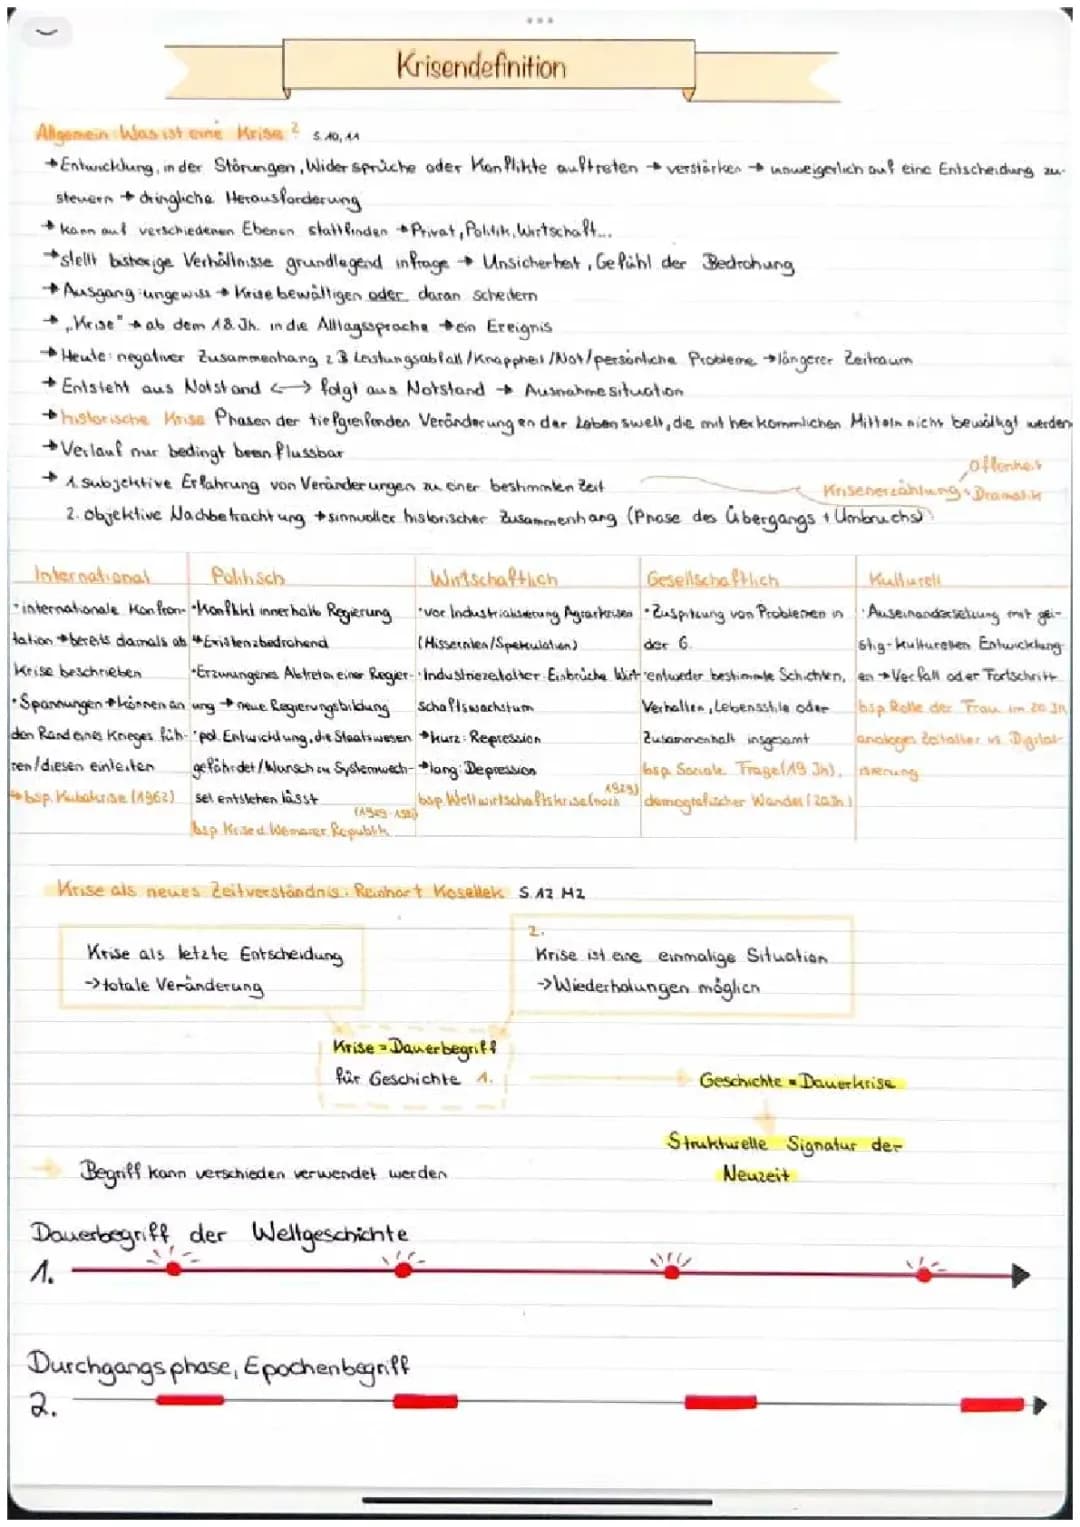 Krisendefinition
Allgemein: Was ist eine Krise? S. 10, 11
→ Entwicklung, in der Störungen, Widersprüche oder Konflikte auftreten → verstärken → unweigerlich auf eine Entscheidung zu-
steuern → dringliche Herausforderung
→ kann auf verschiedenen Ebenen stattfinden → Privat, Politik, Wirtschaft...
→ stellt bisherige Verhältnisse grundlegend infrage → Unsicherheit, Gefühl der Bedrohung
→ Ausgang ungewiss → Krise bewältigen oder daran scheitern
→ „Krise" → ab dem 18. Jh. in die Alltagssprache → ein Ereignis
→ Heute: negativer Zusammenhang z B Leistungsabfall/Knappheit/Not/persönliche Probleme → längerer Zeitraum
→ Entsteht aus Notstand ↔ folgt aus Notstand → Ausnahmesituation
→ historische Krise Phasen der tiefgreifenden Veränderungen der Lebenswelt, die mit herkömmlichen Mitteln nicht bewältigt werden
→ Verlauf nur bedingt beeinflussbar
→ 1. subjektive Erfahrung von Veränderungen zu einer bestimmten Zeit
Offenheit
Krisenerzählung Dramatik
2. objektive Nachbetrachtung → sinnvoller historischer Zusammenhang (Phase des Übergangs + Umbruchs)
International
• internationale Konfron-
tation → bereits damals als
Krise beschrieben
• Spannungen → können an
den Rand eines Krieges füh-
ren/diesen einleiten
→ bsp. Kubakrise (1962)
Politisch
• Konflikt innerhalb Regierung
→ Existenzbedrohend
• Erzwungenes Abtreten einer Regier-
ung → neue Regierungsbildung
• pol. Entwicklung, die Staatswesen
gefährdet/Wunsch zu Systemwech-
sel entstehen lässt
bsp. Krise d. Weimarer Republik
Wirtschaftlich
• vor Industrialisierung Agrarkrisen
(Missernten/Spekulation)
• Industriezeitalter: Einbrüche Wirt-
schaftswachstum
→ kurz: Repression
→ lang: Depression
bsp. Weltwirtschaftskrise (nach 1929)
Gesellschaftlich
• Zuspitzung von Problemen in
der G.
• entweder bestimmte Schichten,
Verhalten, Lebensstile oder
Zusammenhalt insgesamt
bsp. Soziale Frage (19 Jh),
demografischer Wandel (20 Jh)
Kulturell
• Auseinandersetzung mit gei-
stig-kulturellen Entwicklung-
en → Verfall oder Fortschritt
bsp. Rolle der Frau im 20 Jh
analoges Zeitalter vs. Digital-
isierung
Krise als neues Zeitverständnis: Reinhart Kosellek S. 12 M2
Krise als letzte Entscheidung
-> totale Veränderung
2.
Krise ist eine einmalige Situation
-> Wiederholungen möglich
Krise = Dauerbegriff
für Geschichte 1.
Geschichte = Dauerkrise
Strukturelle Signatur der
Neuzeit
→ Begriff kann verschieden verwendet werden
Dauerbegriff der Weltgeschichte
1.
Durchgangsphase, Epochenbegriff
2.